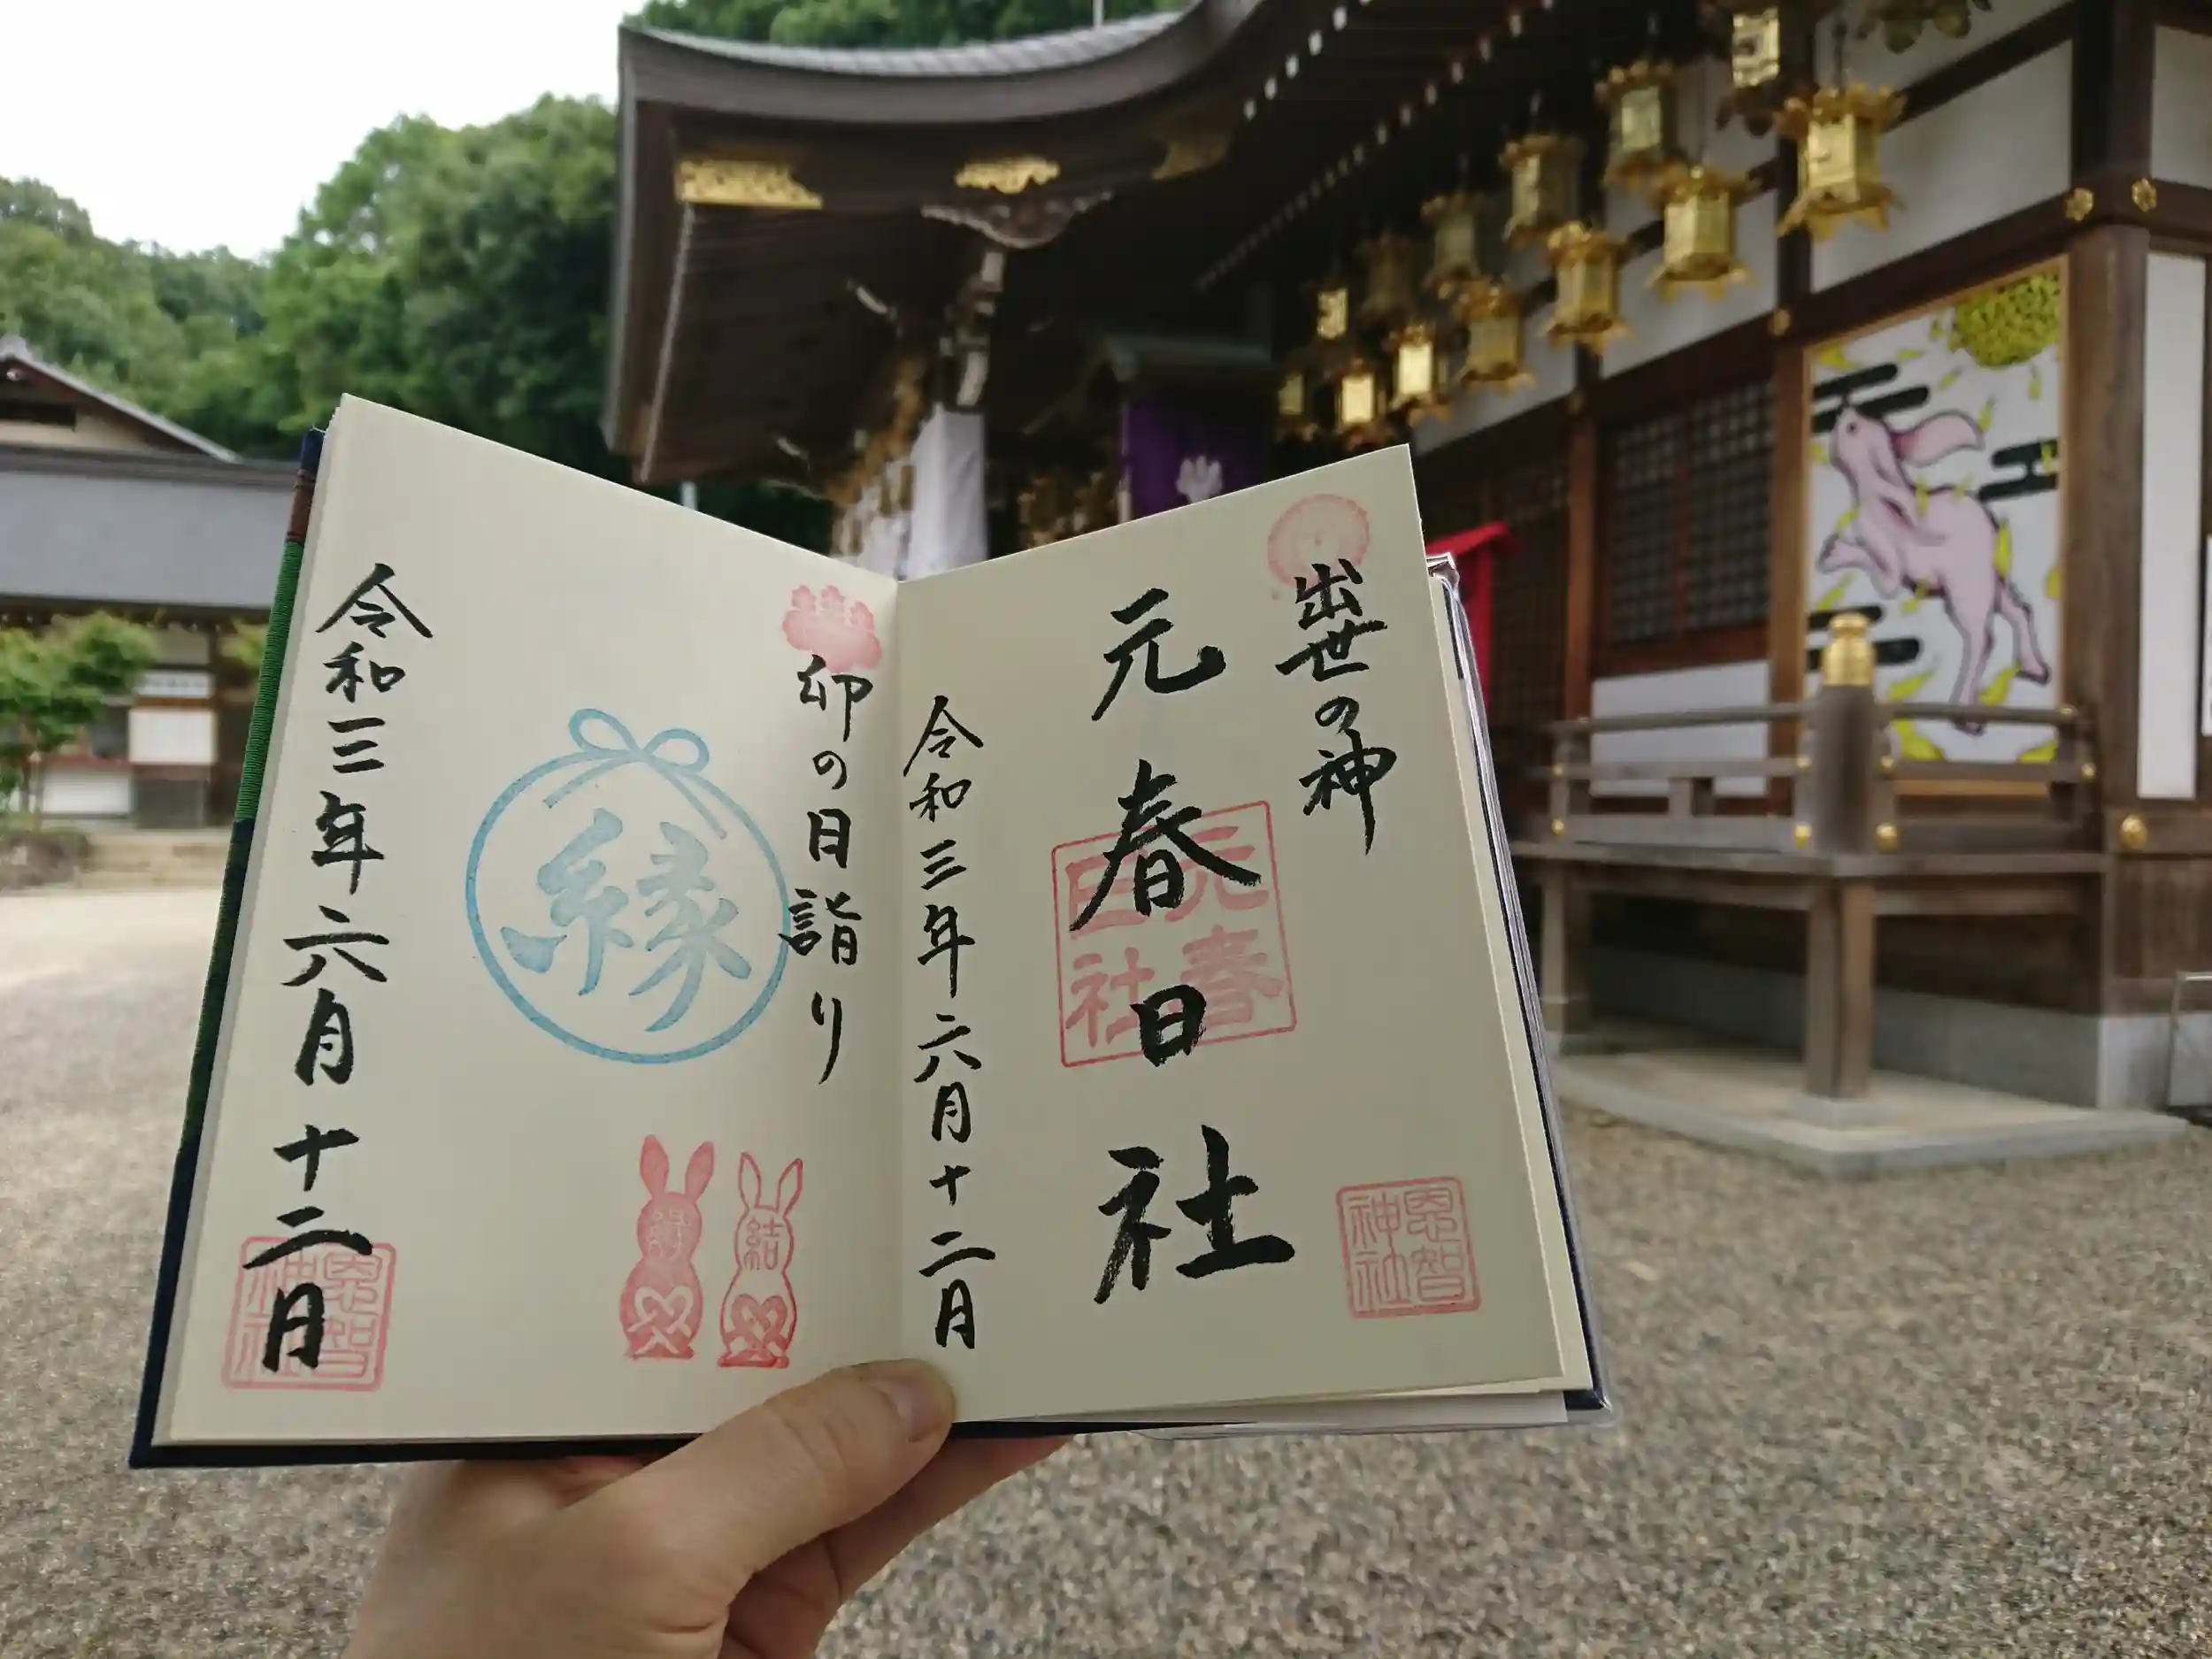 出世の神
元春日社
元春日社
恩智神社
令和三年六月十二月
卯の日詣り
縁
縁
結
令和三年六月十二月
恩智神社